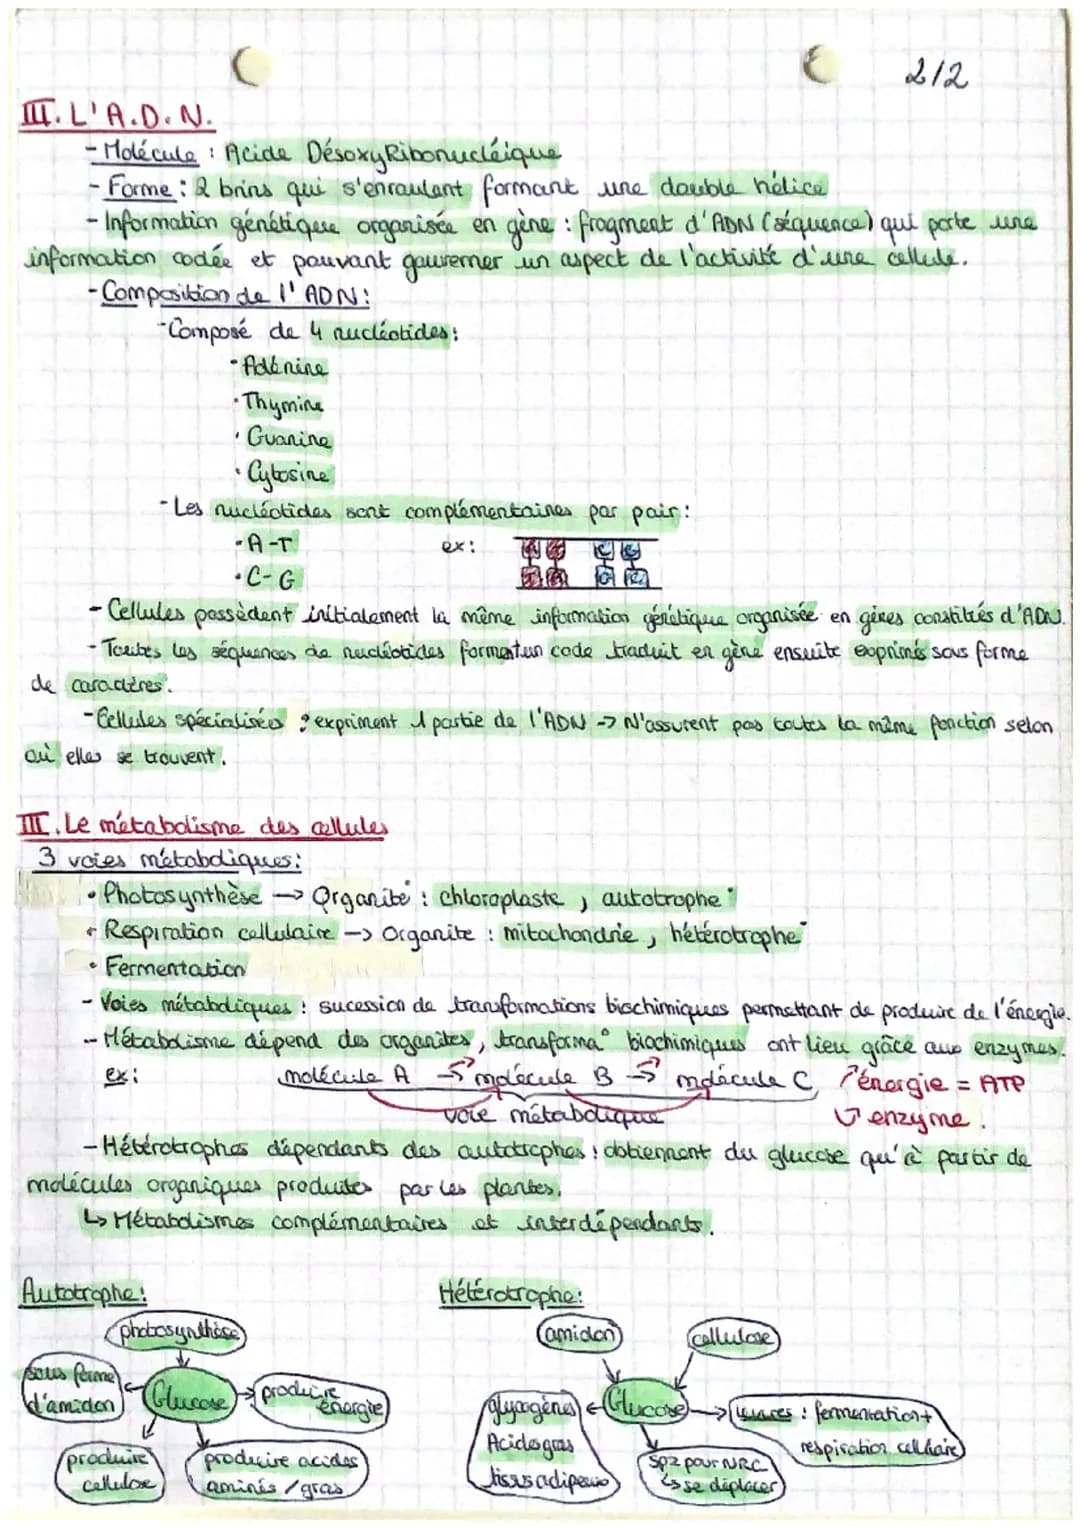 2/2
III. L'A.D.N.
- Molécule : Acide DésoxyRibonucléique
- Forme : 2 brins qui s'enroulent formant une double hélice
- Information génétique organisée en gène : fragment d'ADN (séquence) qui porte une
information codée et pouvant gouverner un aspect de l'activité d'une cellule.
- Composition de l'ADN :
- Composé de 4 nucléotides :
· Adénine
· Thymine
· Guanine
· Cytosine
- Les nucléotides sont complémentaires par pair :
· A-T ex :
· C-G
- Cellules possèdent initialement la même information génétique organisée en gènes constitués d'ADN.
- Toutes les séquences de nucléotides forment un code traduit en gène ensuite exprimés sous forme
de caractères.
- Cellules spécialisées : expriment 1 partie de l'ADN -> N'assurent pas toutes la même fonction selon
où elles se trouvent.
III. Le métabolisme des cellules
3 voies métaboliques :
· Photosynthèse -> Organite : chloroplaste, autotrophe
· Respiration cellulaire -> Organite : mitochondrie, hétérotrophe
· Fermentation
- Voies métaboliques : sucession de transformations biochimiques permettant de produire de l'énergie.
- Métabolisme dépend des organites, transforma° biochimiques ont lieu grâce aux enzymes.
ex : molécule A -> molécule B -> molécule C énergie = ATP
voie métabolique enzyme.
- Hétérotrophes dépendants des autotrophes : obtiennent du glucose qu'à partir de
molécules organiques produites par les plantes.
↳ Métabolismes complémentaires et interdépendants.
Autotrophe : Hétérotrophe :
photosynthèse amidon cellulose
sous forme
d'amidon
Glucose
produire
énergie
produire
cellulose
produire acides
aminés / gras
glycogènes
Acides gras
tissus adipeux
Glucose
: fermentation +
respiration cellulaire
spz pour NRC
↳ se déplacer